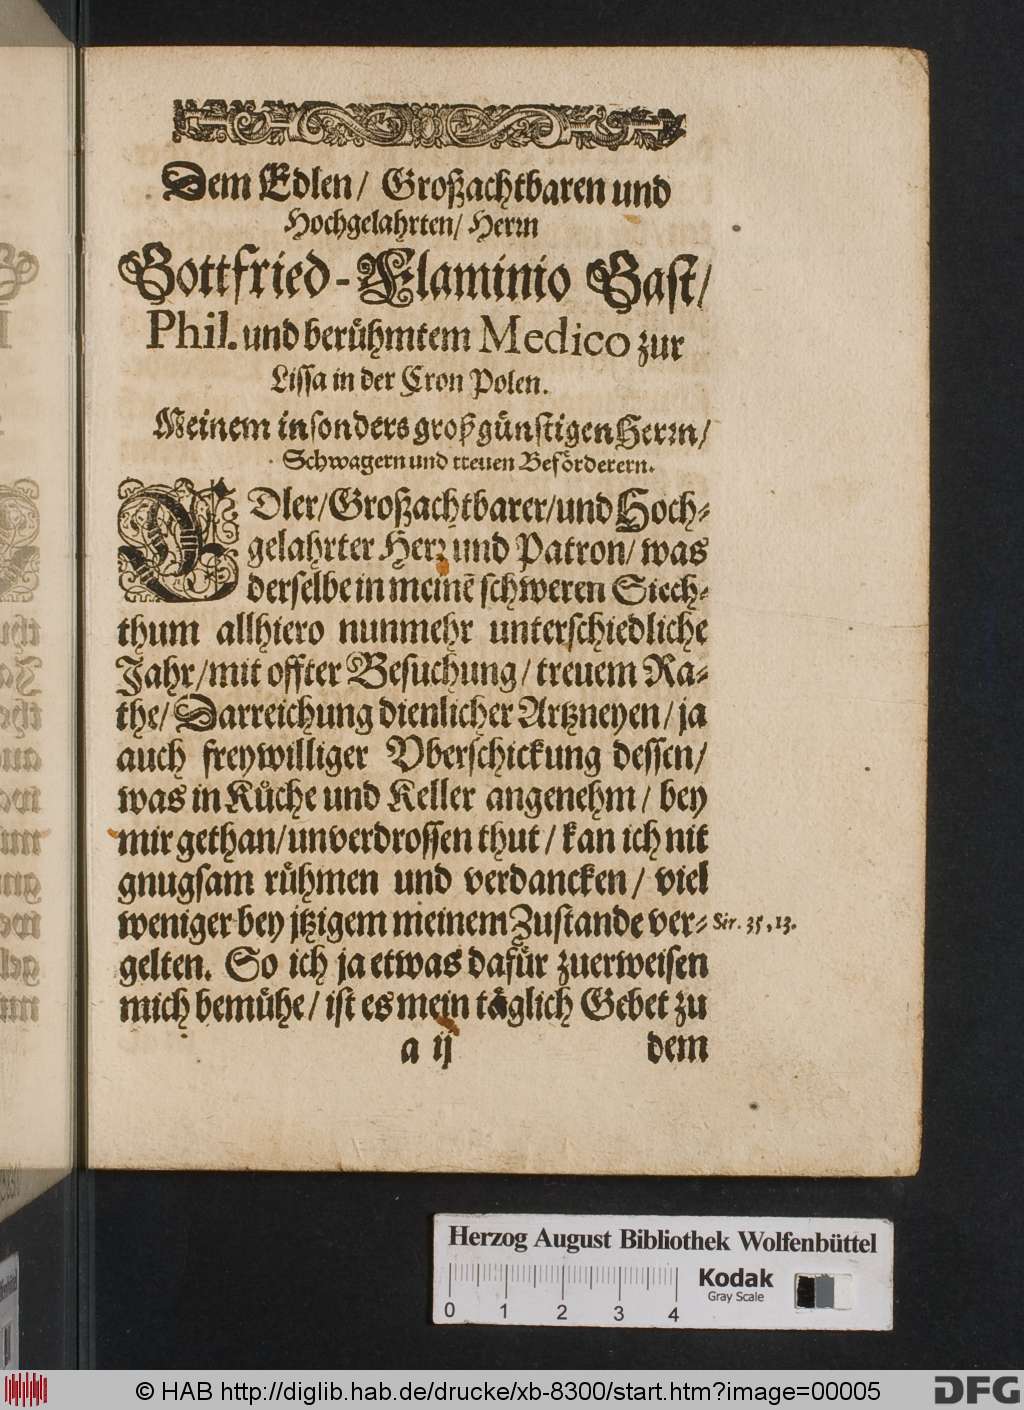 Dem Edlen/ Großachtbaren und
Hochgelahrten/ Herrn
Gottfried-Flaminio Gast/
Phil. und berühmtem Medico zur
Lissa in der Cron Polen.
Meinem insonders großgünstigen Herrn/
Schwagern und treuen Beförderern.
EDler/Großachtbarer/und Hoch-
gelahrter Herr und Patron/ was
derselbe in meinē schweren Siech-
thum allhiero nunmehr unterschiedliche
Jahr/mit offter Besuchung/treuem Ra-
the/Darreichung dienlicher Artzneyen/ja
auch freywilliger Vberschickung dessen/
was in Küche und Keller angenehm/ bey
mir gethan/unverdrossen thut/kan ich nit
gnugsam rühmen und verdancken/ viel
weniger bey jtzigem meinem Zustande ver-
Sir. 35, 13.
gelten. So ich ja etwas dafür zuerweisen
mich bemühe/ist es mein täglich Gebet zu
a ij dem
Herzog August Bibliothek Wolfenbüttel
Kodak
Gray Scale
0 1 2 3 4
© HAB http://diglib.hab.de/drucke/xb-8300/start.htm?image=00005
DFG